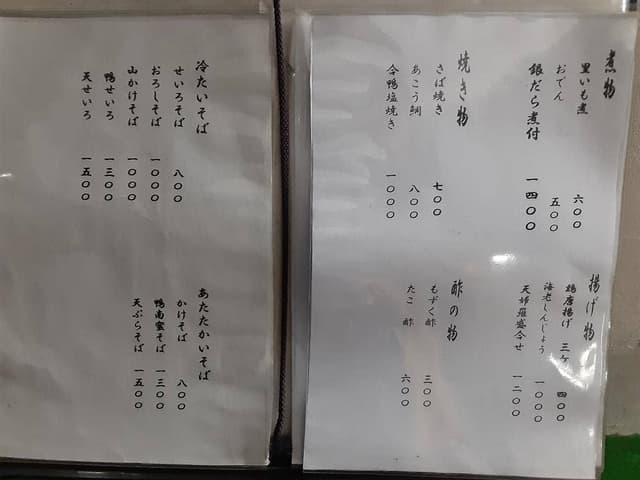 煮物
里いも煮 六〇〇
おでん 五〇〇
銀だら煮付 一四〇〇
焼き物
さば焼き 七〇〇
あこう鯛 八〇〇
合鴨塩焼き 一〇〇〇
揚げ物
鶏唐揚げ 三ヶ 四〇〇
海老しんじょう 一〇〇〇
天婦羅盛合せ 一二〇〇
酢の物
もずく酢 三〇〇
たこ酢 六〇〇
冷たいそば
せいろそば 八〇〇
おろしそば 一〇〇〇
山かけそば 一〇〇〇
鴨せいろ 一三〇〇
天せいろ 一五〇〇
あたたかいそば
かけそば 八〇〇
鴨南蛮そば 一三〇〇
天ぷらそば 一五〇〇